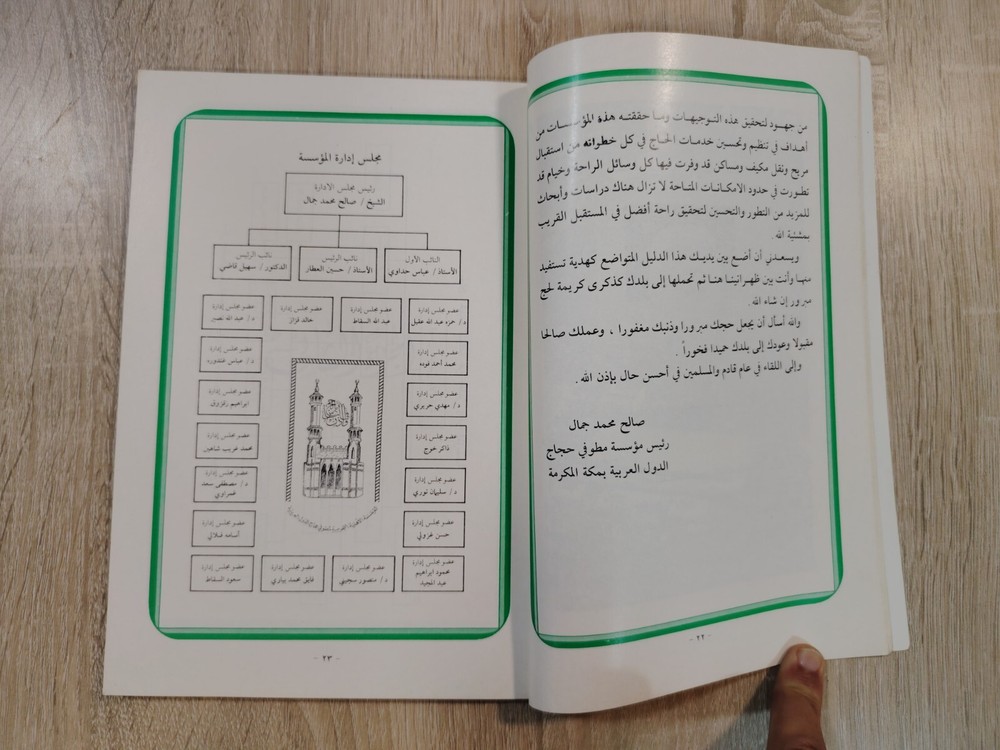 من جهود لتحقيق هذه التوجيهات وما حققته هذه المؤسسات من
أهداف في تنظيم وتحسين خدمات الحاج في كل خطواته من استقبال
مريح ونقل مكيف ومساكن قد وفرت فيها كل وسائل الراحة وخيام قد
تطورت في حدود الامكانات المتاحة لا تزال هناك دراسات وأبحاث
للمزيد من التطور والتحسين لتحقيق راحة أفضل في المستقبل القريب
بمشئية الله .
ويسعدني أن أضع بين يديك هذا الدليل المتواضع كهدية تستفيد
منها وأنت بين ظهرانينا هنا ثم تحملها إلى بلدك كذكرى كريمة لحج
مبرور إن شاء الله .
والله أسأل أن يجعل حجك مبرورا وذنبك مغفورا ، وعملك صالحا
مقبولا وعودك إلى بلدك حميدا فخوراً .
وإلى اللقاء في عام قادم والمسلمين في أحسن حال بإذن الله .
صالح محمد جمال
رئيس مؤسسة مطوفي حجاج
الدول العربية بمكة المكرمة
- ٢٢ -
مجلس إدارة المؤسسة
رئيس مجلس الادارة
الشيخ / صالح محمد جمال
النائب الأول
الأستاذ / عباس حداوي
نائب الرئيس
الأستاذ / حسين العطار
نائب الرئيس
الدكتور / سهيل قاضي
عضو مجلس إدارة
د / حمزه عبد الله عقيل
عضو مجلس إدارة
عبد الله السقاط
عضو مجلس إدارة
خالد قزاز
عضو مجلس إدارة
د / عبد الله نصير
عضو مجلس إدارة
محمد أحمد فوده
عضو مجلس إدارة
د / عباس غندوره
عضو مجلس إدارة
د / مهدي حريري
عضو مجلس إدارة
ابراهيم زقزوق
عضو مجلس إدارة
ذاكر خوج
عضو مجلس إدارة
محمد غريب شاهين
عضو مجلس إدارة
د / سليمان نوري
عضو مجلس إدارة
د / مصطفى سعد
عضو مجلس إدارة
حسن غزولي
عضو مجلس إدارة
أسامه فلالي
عضو مجلس إدارة
محمود ابراهيم
عبد المجيد
عضو مجلس إدارة
د / منصور سجيني
عضو مجلس إدارة
فايق محمد بياري
عضو مجلس إدارة
سعود السقاط
- ٢٣ -